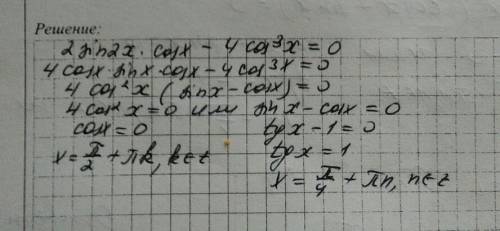 Решение:
2 sin2x · cosx - 4 cos³x = 0
4 cosx · sinx · cosx - 4 cos³x = 0
4 cos²x (sinx - cosx) = 0
4 cos²x = 0 или sinx - cosx = 0
cosx = 0 tgx - 1 = 0
tgx = 1
x = π/2 + πk, k∈z
x = π/4 + πn, n∈z